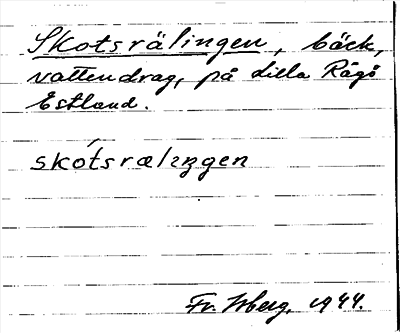 Skotsrälingen, bäck,
vattendrag, på Lilla Rågö
Estland.
skótsrælıŋgen
Fr. Wberg, 1944.